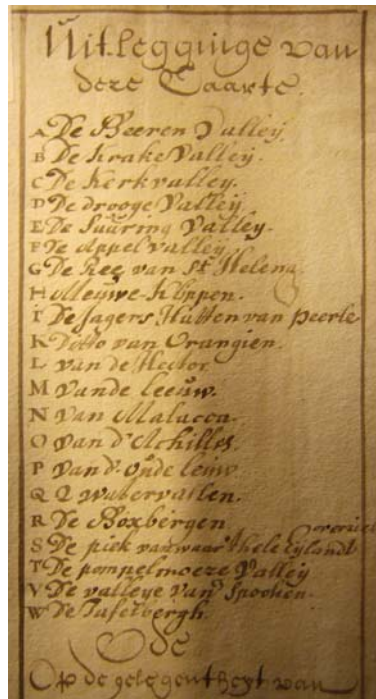 Uitlegginge van
deze Caarte.
A De Beeren Valley
B De Krake Valley.
C De Kerkvalley.
D De drooge Valley
E De Suúring Valley.
F De Appel valley
G De Ree van St. Helena
H Meeúwe-Klippen.
I De Jagers Hutten van Peerle
K Ditto van Orangien.
L van de Hector
M Vande leeúw.
N van Malacca.
O van d'Achilles
P van d. oúde leeúw
Q 2 watervallen.
R De Boxbergen
S De piek van waar 't hele Eylandt overziet
T De pompelmoeze Valley
V De valleye van Spooken.
W De Tafelbergh.
Ode
Op de gelegentheyt van